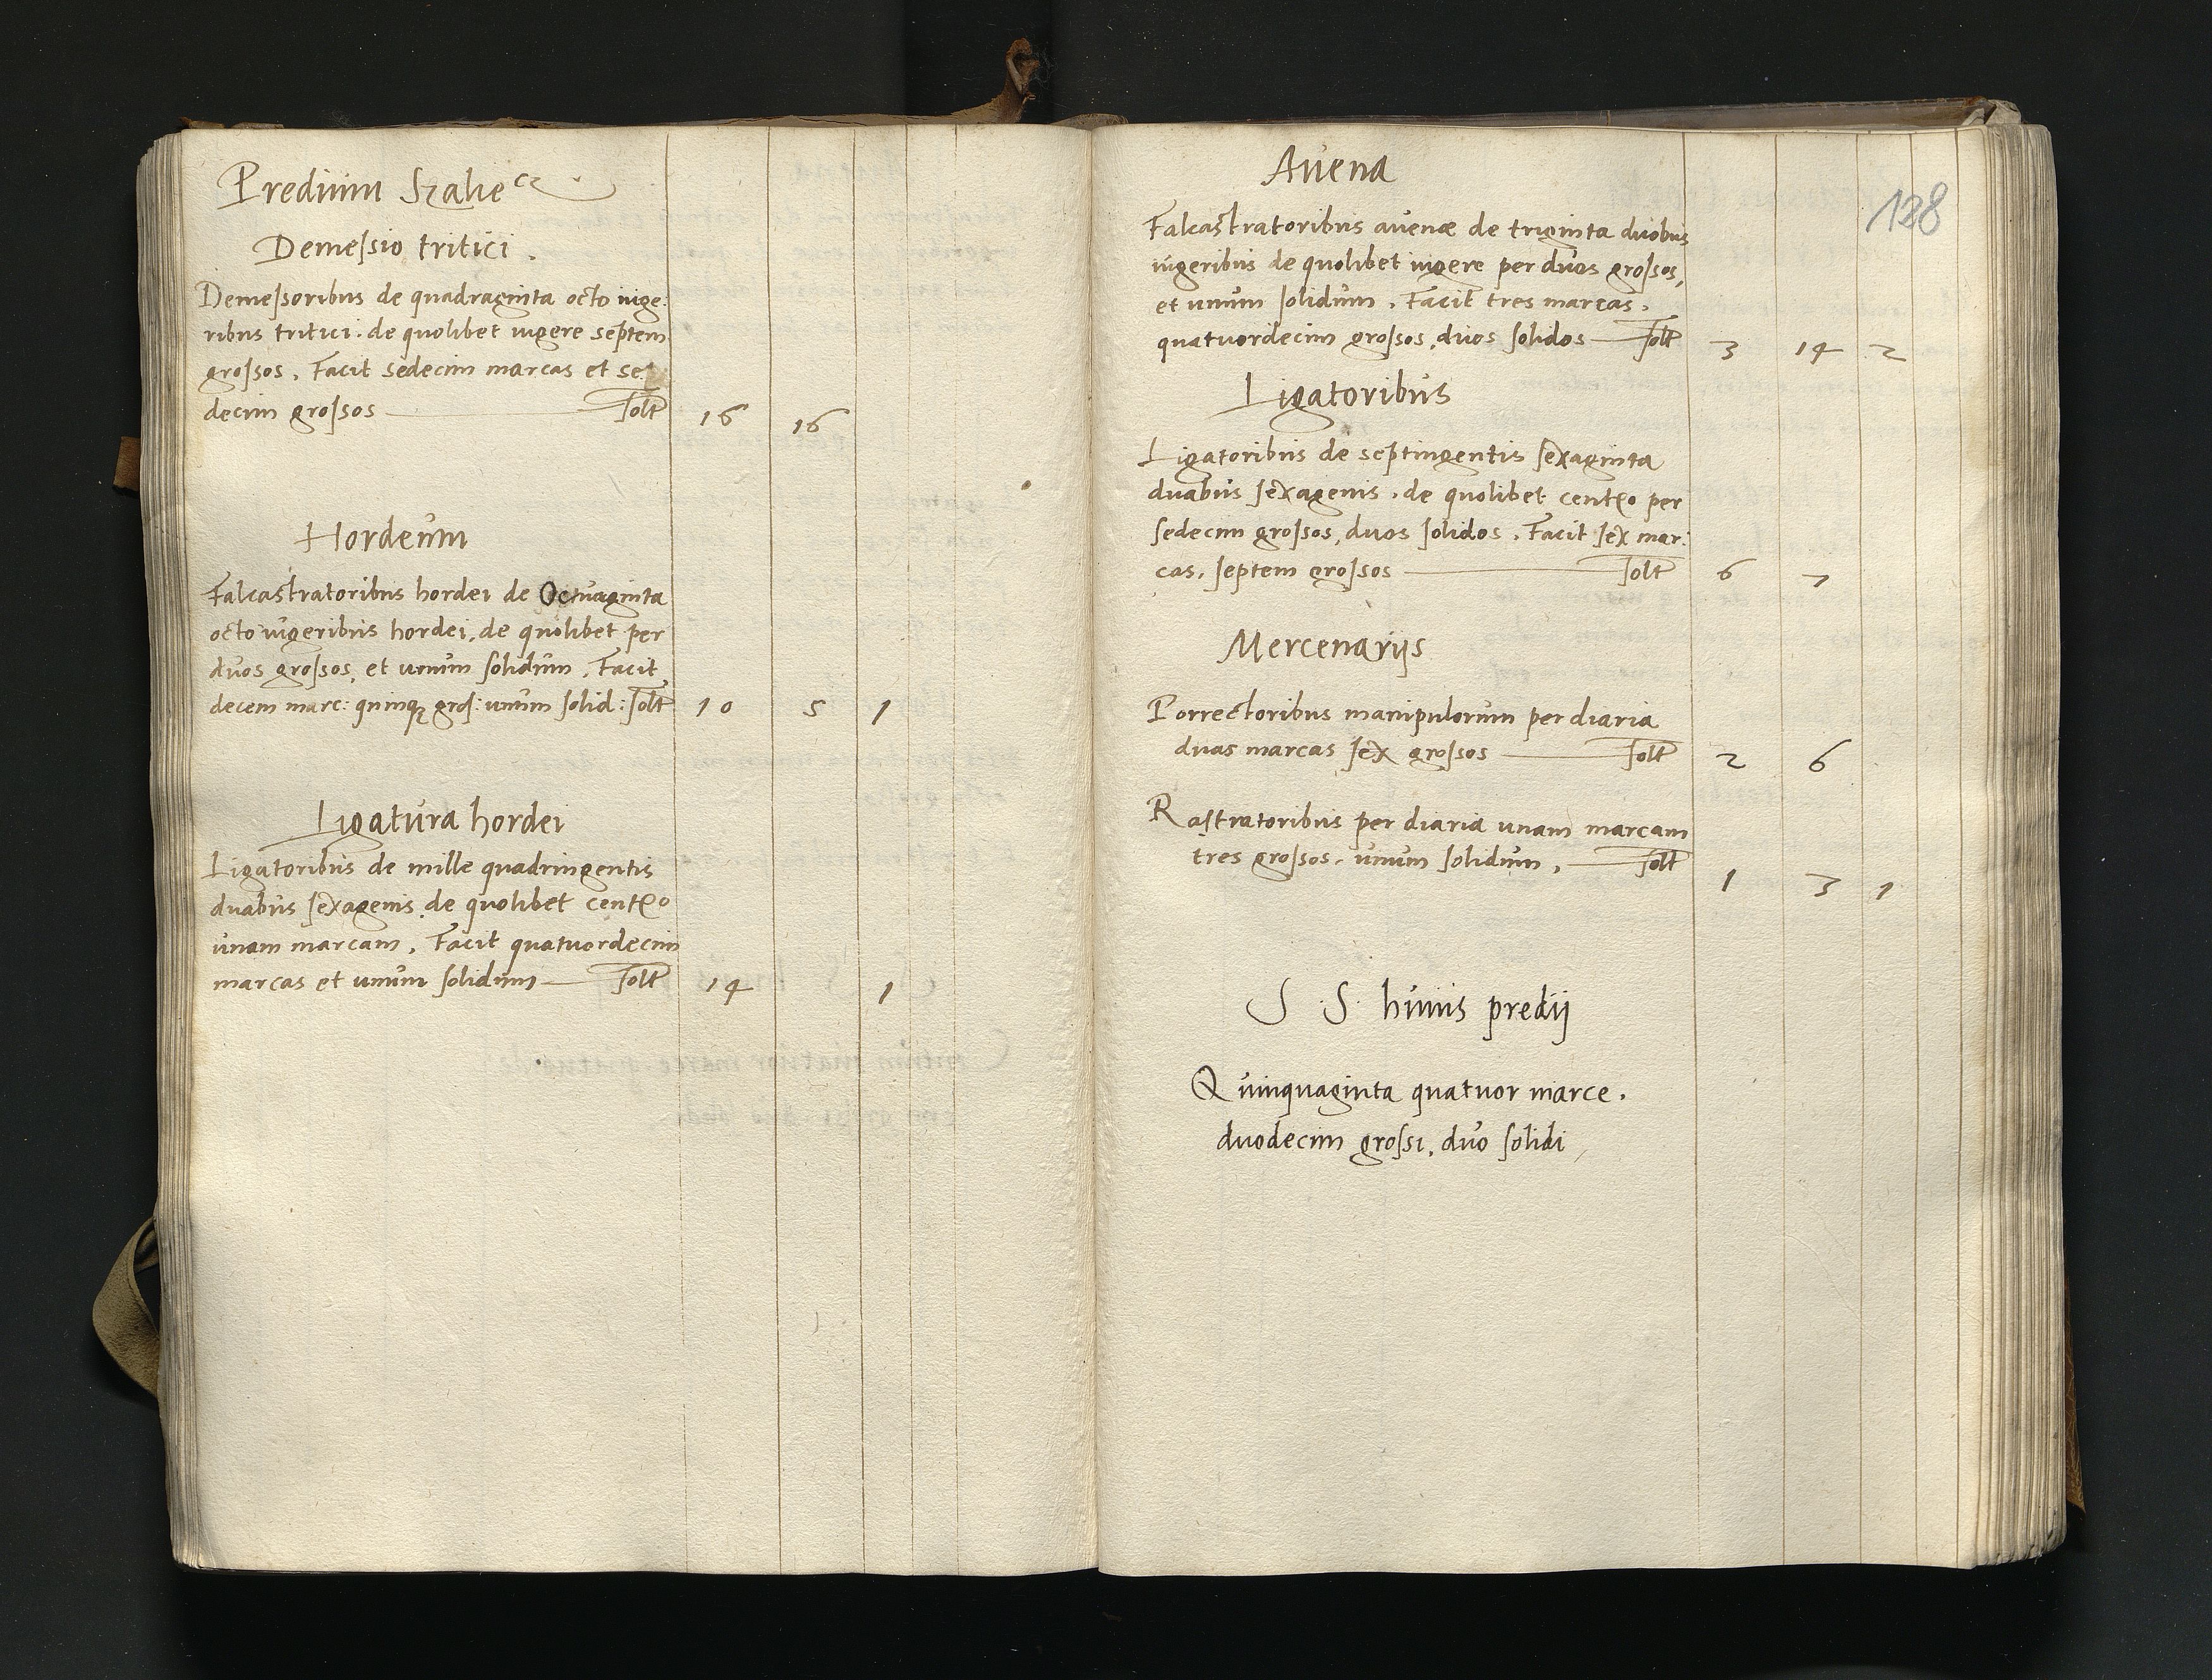 Predium Szalie
Demeſsio tritici.
Demeſsoribus de quadraginta octo iuge:
ribus tritici. de quolibet iugere septem
groſsos. Facit sedecim marcas et se
decim groſsos — ſolt 16 16
Hordeum
Falcastratoribus hordei de Octuaginta
octo iugeribus hordei, de quolibet per
duos groſsos, et unum ſolidum. Facit
decem marc: quinqꝫ groſ: unum ſolid: ſolt 10 5 1
Ligatura hordei
Ligatoribus de mille quadringentis
duabus ſexagenis. de quolibet cento
unam marcam. Facit quatuordecim
marcas et unum ſolidum — ſolt 14 1
188
Auena
Falcastratoribus auenæ de triginta duobus
iugeribus de quolibet iugere per duos groſsos,
et unum ſolidum. Facit tres marcas.
quatuordecim groſsos, duos ſolidos — ſolt 3 14 2
Ligatoribus
Ligatoribus de septingentis ſexaginta
duabus ſexagenis. de quolibet cento per
sedecim groſsos, duos ſolidos. Facit ſex mar:
cas, ſeptem groſsos — ſolt 6 7
Mercenarijs
Porrectoribus manipulorum per diaria
duas marcas ſex groſsos — ſolt 2 6
Rastratoribus per diaria unam marcam
tres groſsos. unum ſolidum. — ſolt 1 3 1
S S huius predij
Quinquaginta quatuor marce.
duodecim groſsi, duo ſolidi